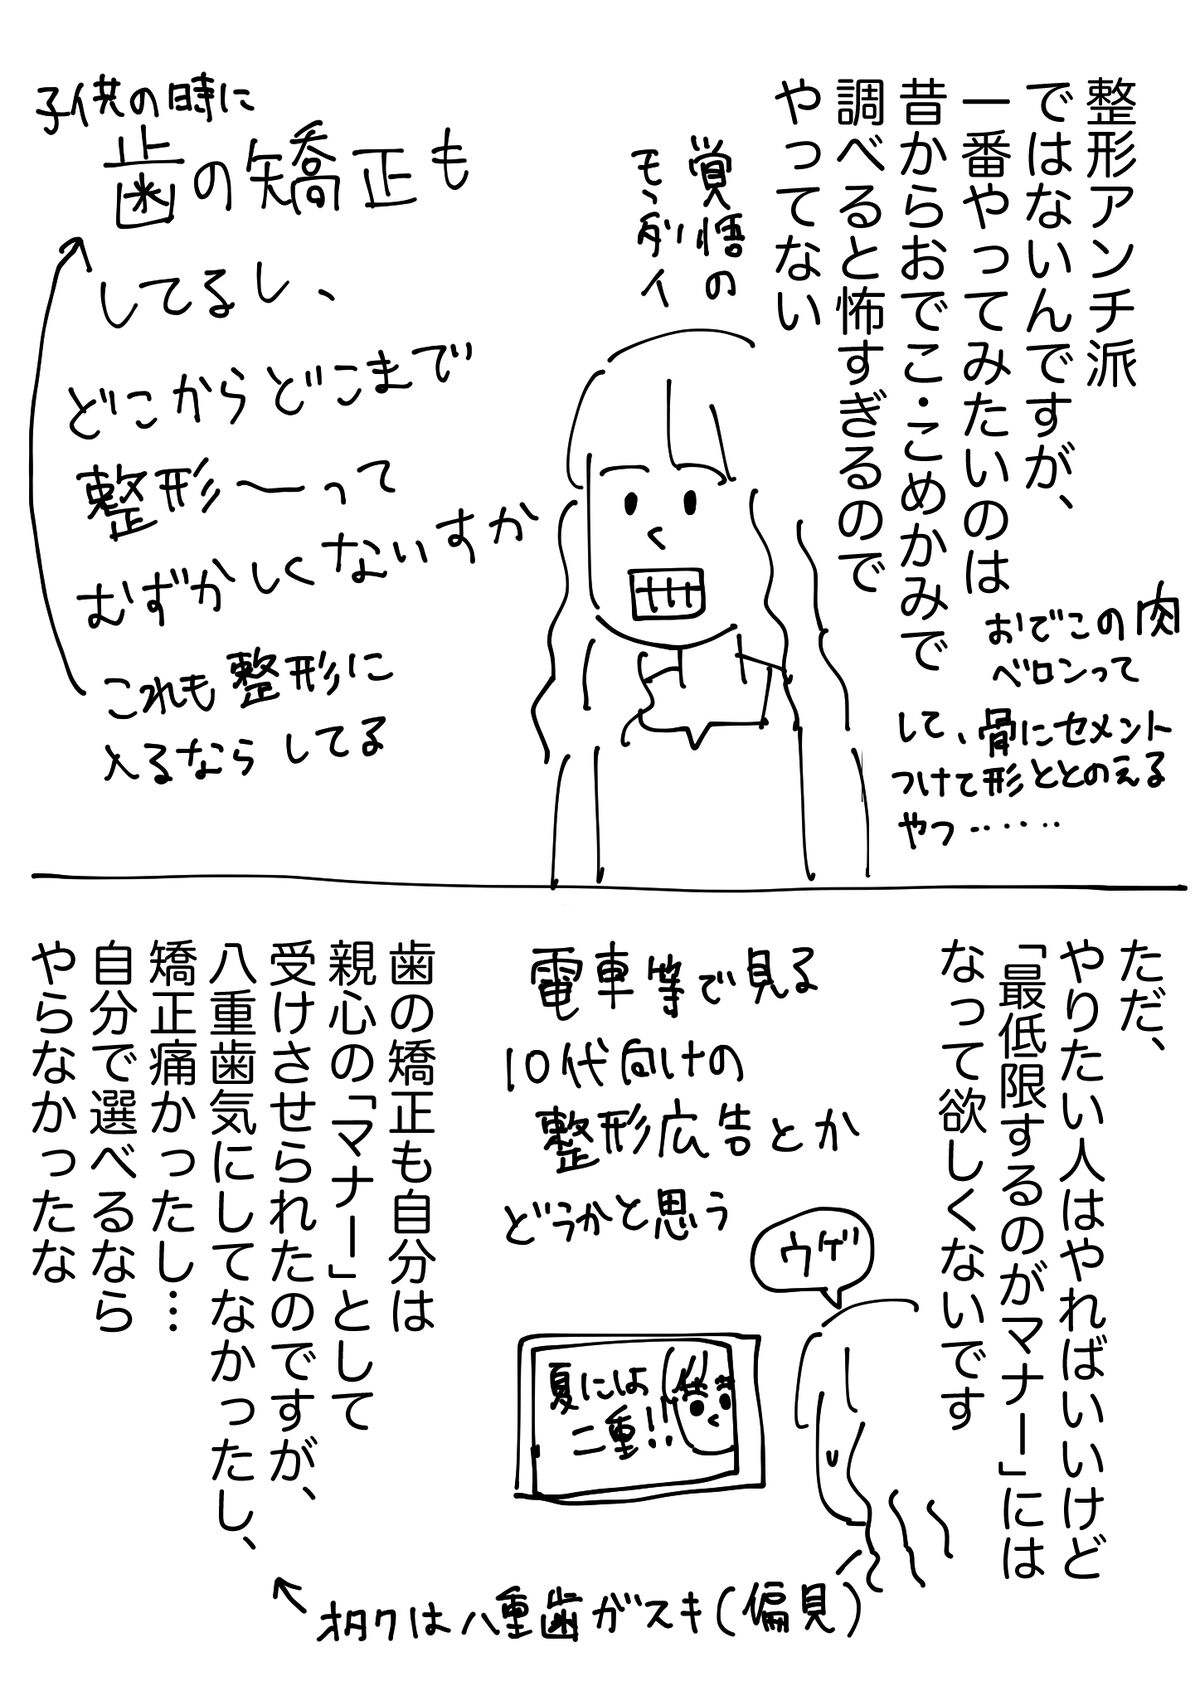 整形アンチ派
ではないんですが、
一番やってみたいのは
昔からおでこ・こめかみで
調べると怖すぎるので
やってない
おでこの肉
ベロンって
して、骨にセメント
つけて形ととのえる
やつ‥‥‥
覚悟の
モンダイ
子供の時に
歯の矯正も
してるし、
どこからどこまで
整形〜って
むずかしくないすか
これも整形に
入るならしてる
ただ、
やりたい人はやればいいけど
「最低限するのがマナー」には
なって欲しくないです
電車等で見る
10代向けの
整形広告とか
どうかと思う
ウゲ
夏には
二重!!
歯の矯正も自分は
親心の「マナー」として
受けさせられたのですが、
八重歯気にしてなかったし、
矯正痛かったし…
自分で選べるなら
やらなかったな
オタクは八重歯がスキ(偏見)